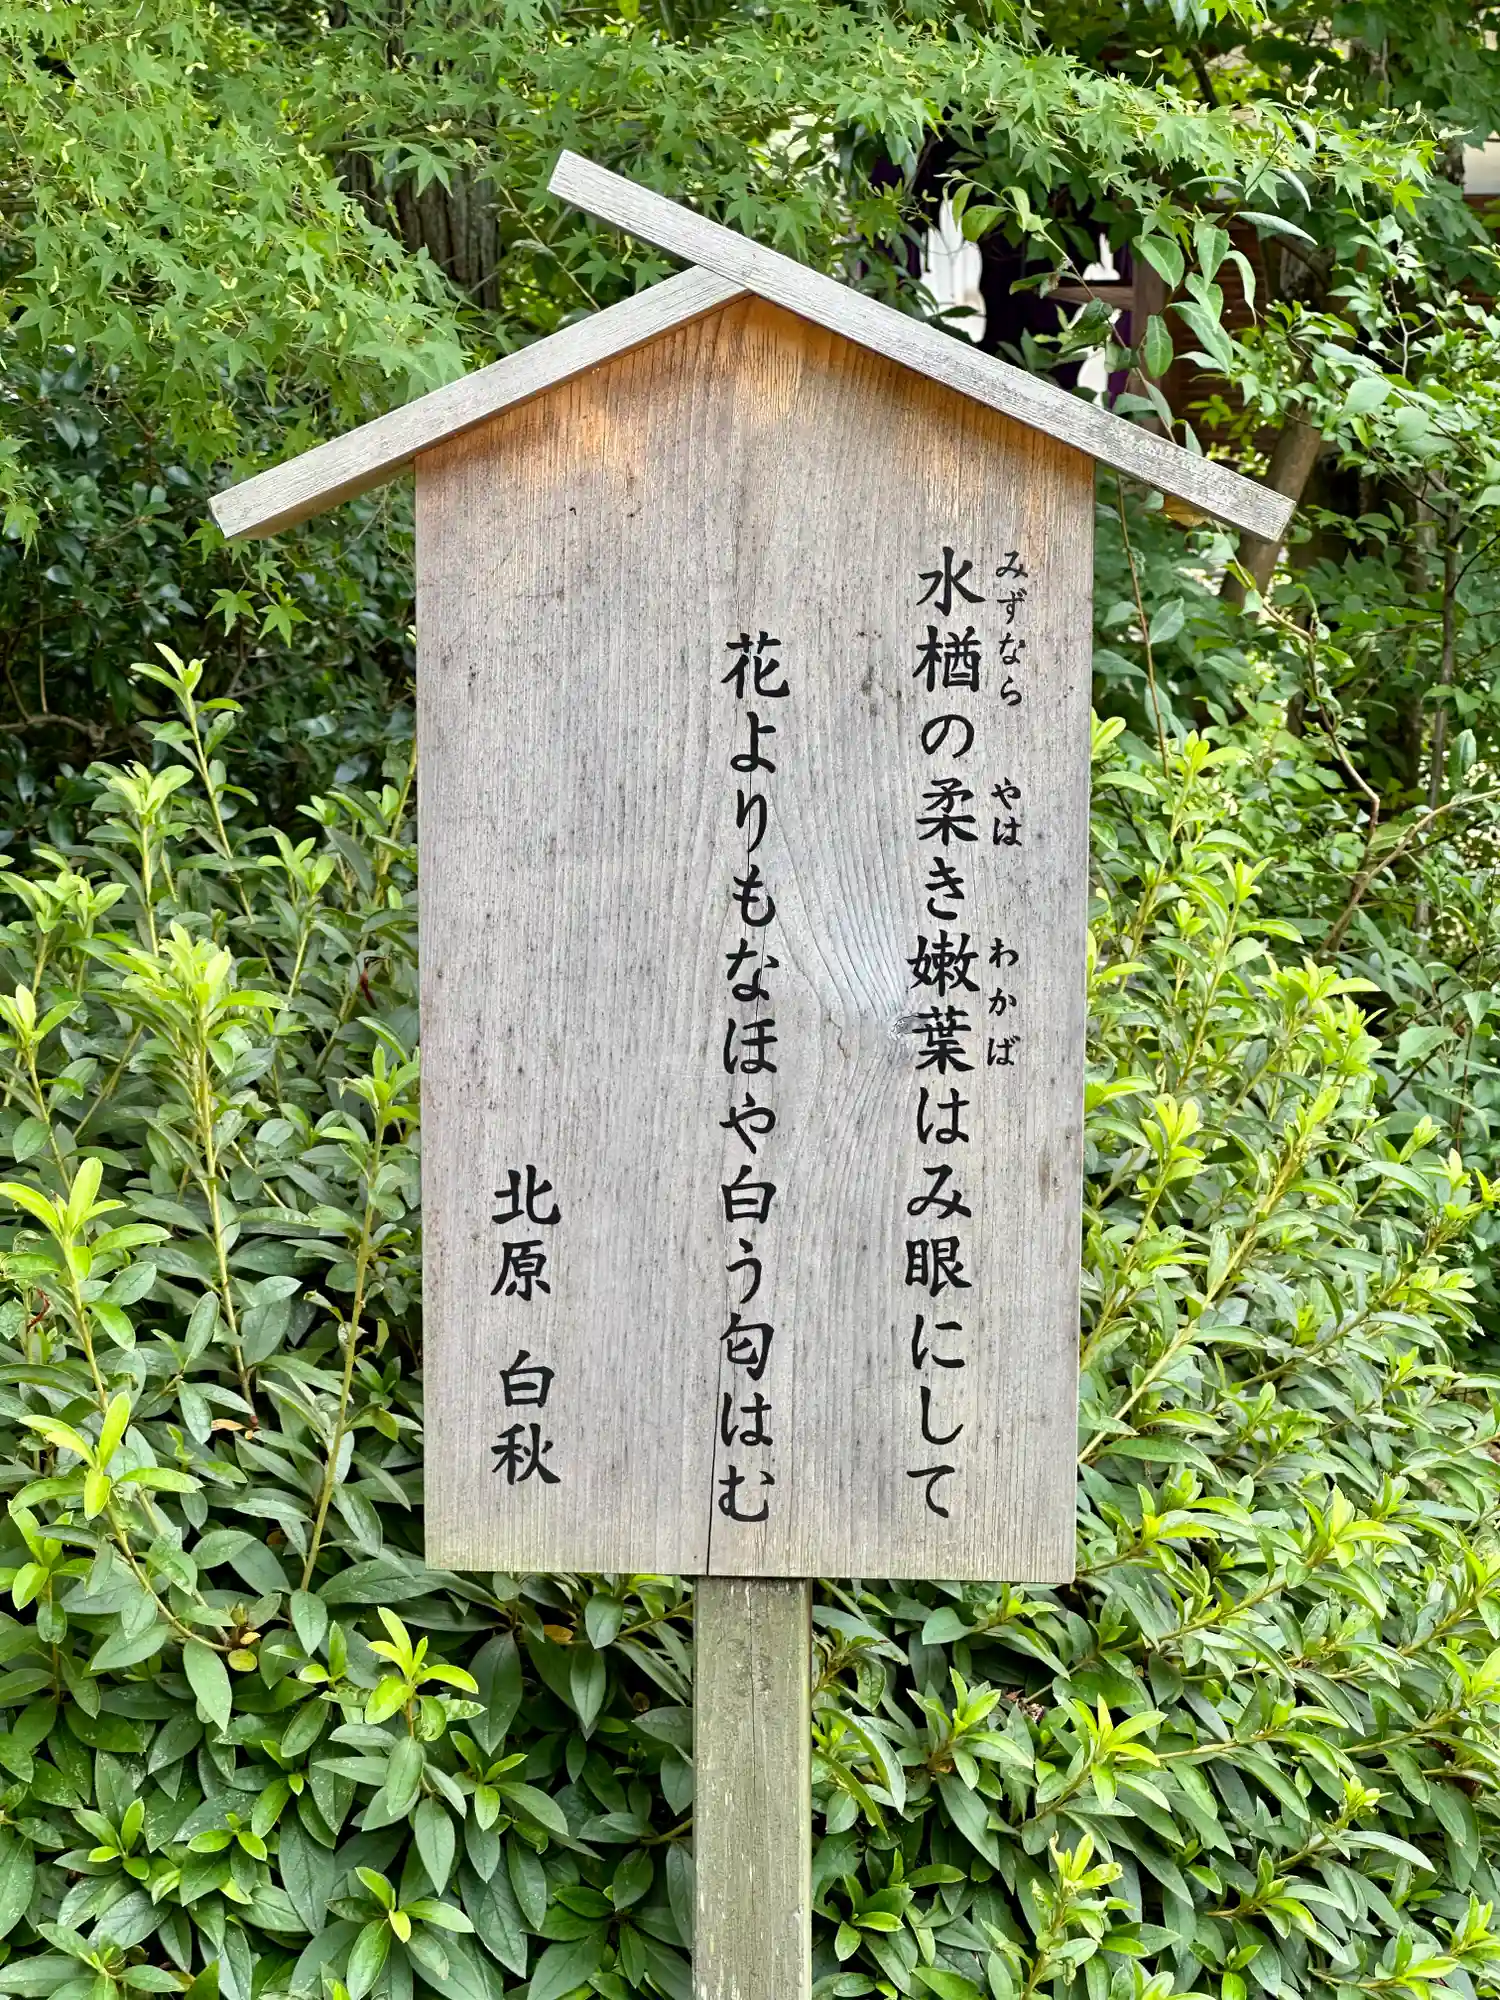 水楢の柔き嫩葉はみ眼にして
みずなら やは わかば
花よりもなほや白う匂はむ
北原 白秋